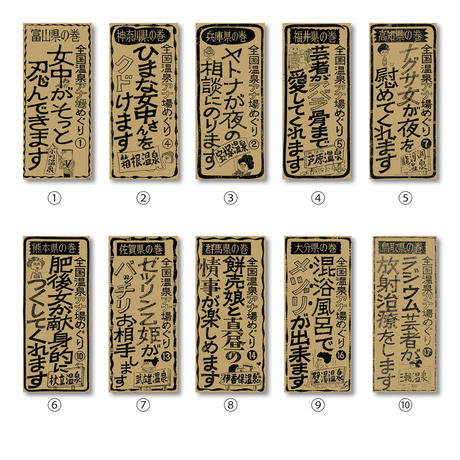 富山県の巻
全国温泉アナ場めぐり①
女中がそっと
忍んできます
①
神奈川県の巻
全国温泉アナ場めぐり④
ひまな女中さんを
クドけます
箱根温泉
②
兵庫県の巻
全国温泉アナ場めぐり②
ヤトナが夜の
相談にのります
宝塚温泉
③
福井県の巻
全国温泉アナ場めぐり⑤
芸者がバラ骨まで
愛してくれます
芦原温泉
④
高知県の巻
全国温泉アナ場めぐり⑦
ナグサ女が夜を
慰めてくれます
⑤
熊本県の巻
全国温泉アナ場めぐり⑩
肥後女が献身的に
つくしてくれます
杖立温泉
⑥
佐賀県の巻
全国温泉アナ場めぐり⑬
ゼッツン乙姫が
バッチリお相手します
武雄温泉
⑦
群馬県の巻
全国温泉アナ場めぐり⑭
餅売娘と真昼の
情事が楽しめます
伊香保温泉
⑧
大分県の巻
全国温泉アナ場めぐり⑯
混浴風呂で
メヅリが出来ます
⑨
鳥取県の巻
全国温泉アナ場めぐり⑰
ラジウム芸者が
放射治療をします
⑩